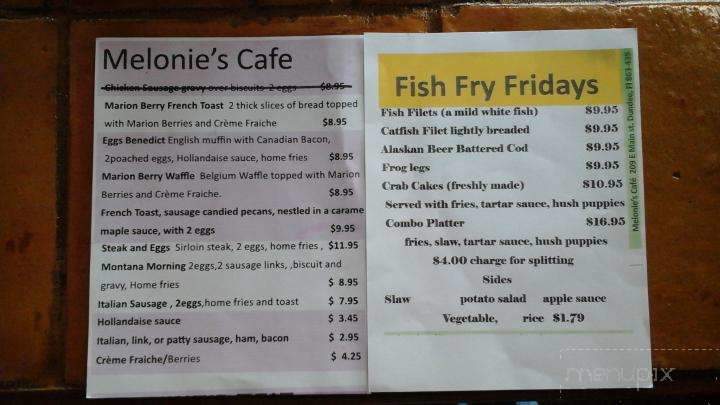 Melonie's Cafe
Chicken Sausage gravy over biscuits 2 eggs $8.95
Marion Berry French Toast 2 thick slices of bread topped
with Marion Berries and Crème Fraiche $8.95
Eggs Benedict English muffin with Canadian Bacon,
2poached eggs, Hollandaise sauce, home fries $8.95
Marion Berry Waffle Belgium Waffle topped with Marion
Berries and Crème Fraiche. $8.95
French Toast, sausage candied pecans, nestled in a carame
maple sauce, with 2 eggs $9.95
Steak and Eggs Sirloin steak, 2 eggs, home fries , $11.95
Montana Morning 2eggs,2 sausage links, ,biscuit and
gravy, Home fries $ 8.95
Italian Sausage , 2eggs,home fries and toast $ 7.95
Hollandaise sauce $ 3.45
Italian, link, or patty sausage, ham, bacon $ 2.95
Crème Fraiche/Berries $ 4.25
Fish Fry Fridays
Fish Filets (a mild white fish) $9.95
Catfish Filet lightly breaded $9.95
Alaskan Beer Battered Cod $9.95
Frog legs $9.95
Crab Cakes (freshly made) $10.95
Served with fries, tartar sauce, hush puppies
Combo Platter $16.95
fries, slaw, tartar sauce, hush puppies
$4.00 charge for splitting
Sides
Slaw potato salad apple sauce
Vegetable, rice $1.79
Melonie's Café 209 E Main st. Dundee, Fl 863-439
menupix